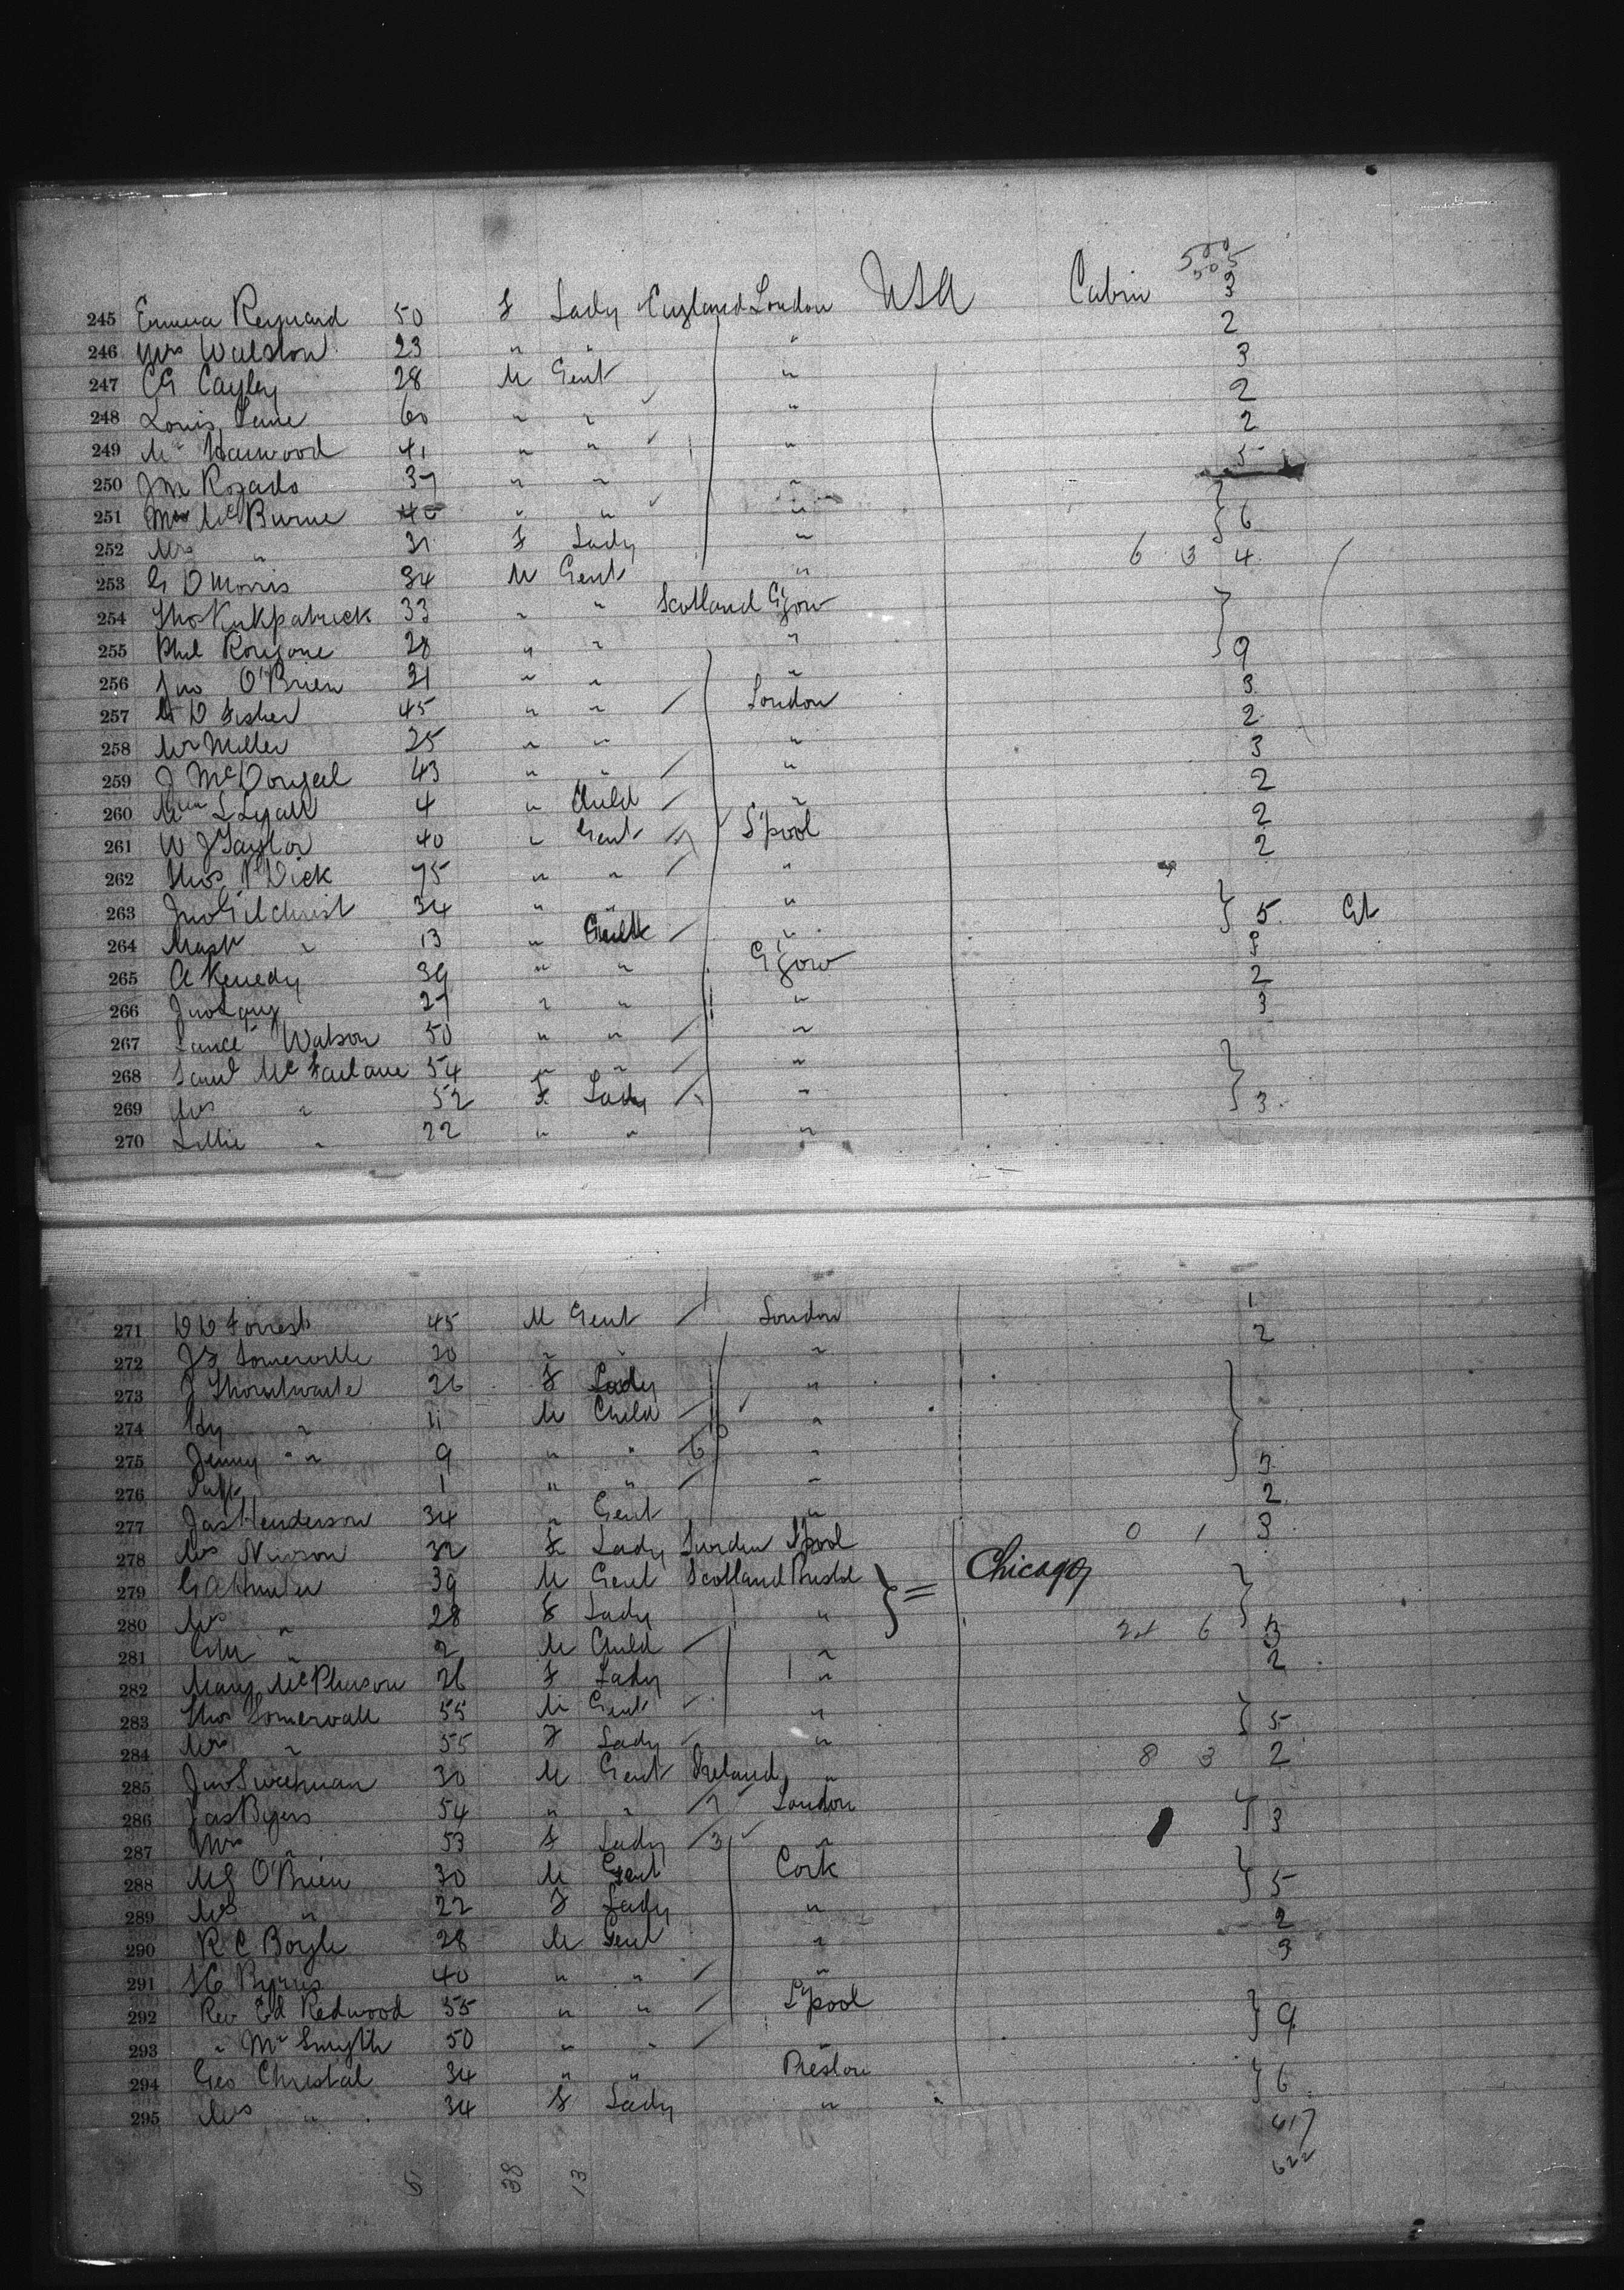 580
505
245 Emma Reynard 50 F Lady England London USA Cabin 3
246 Mrs Walston 23 " " " 2
247 CG Cayley 28 M Gent " 3
248 Louis Lane 60 " " " 2
249 Mr Harwood 41 " " " 2
250 Jm Rozado 37 " " " 5
251 Mr McBurne " " "
252 Mrs " 31 F Lady " } 6
253 G D Morris 34 M Gent " 6 3 4
254 Thos Kirkpatrick 33 " " Scotland Ggow
255 Phil 28 " " " } 9
256 Jno O'Brien 31 " " " 3
257 D Fisher 45 " " London 2
258 Mr Miller 25 " " " 3
259 J McDougal 43 " " " 2
260 L Lyall 4 " Child " 2
261 W J Taylor 40 " Gent L'pool 2
262 Thos P Dick 75 " " "
263 Jno Gilchrist 34 " " " } 5 Gt
264 Mast " 13 " "
265 A Kenedy 39 " " Ggow 2
266 Jno 27 " " " 3
267 Lance Watson 50 " " "
268 Saml McFarlane 54 " " "
269 Mrs " 52 F Lady " } 3
270 Lillie " 22 " " "
271 D D Forrest 45 M Gent London 1
272 Somerville 20 " " " 2
273 J Thornthwaite 26 F Lady "
274 " 11 M Child "
275 Jenny " " 9 " " " }
276 1 " " " 2
277 Jas Henderson 34 " Gent " 0 1 3
278 Mrs 32 F Lady L'pool
279 G A Hunter 39 M Gent Scotland } = Chicago
280 Mrs " 28 F Lady " 24 6
281 " 2 M Child " 2
282 Mary McPherson 26 F Lady "
283 Thos Somervall 55 M Gent " } 5
284 Mrs " 55 F Lady " 8 3 2
285 Jno Sweetman 30 M Gent Ireland "
286 Jas Byers 54 " " London } 3
287 Mrs " 53 F Lady 3 "
288 O'Brien 30 M Gent Cork } 5
289 Mrs " 22 F Lady " 2
290 R C Boyle 28 M Gent " 3
291 Byrns 40 " " "
292 Rev Ed Redwood 55 " " L'pool } 9
293 " Mr Smyth 50 " " "
294 Geo Christal 34 " " Preston } 6
295 Mrs " 34 F Lady "
617
622
38 13